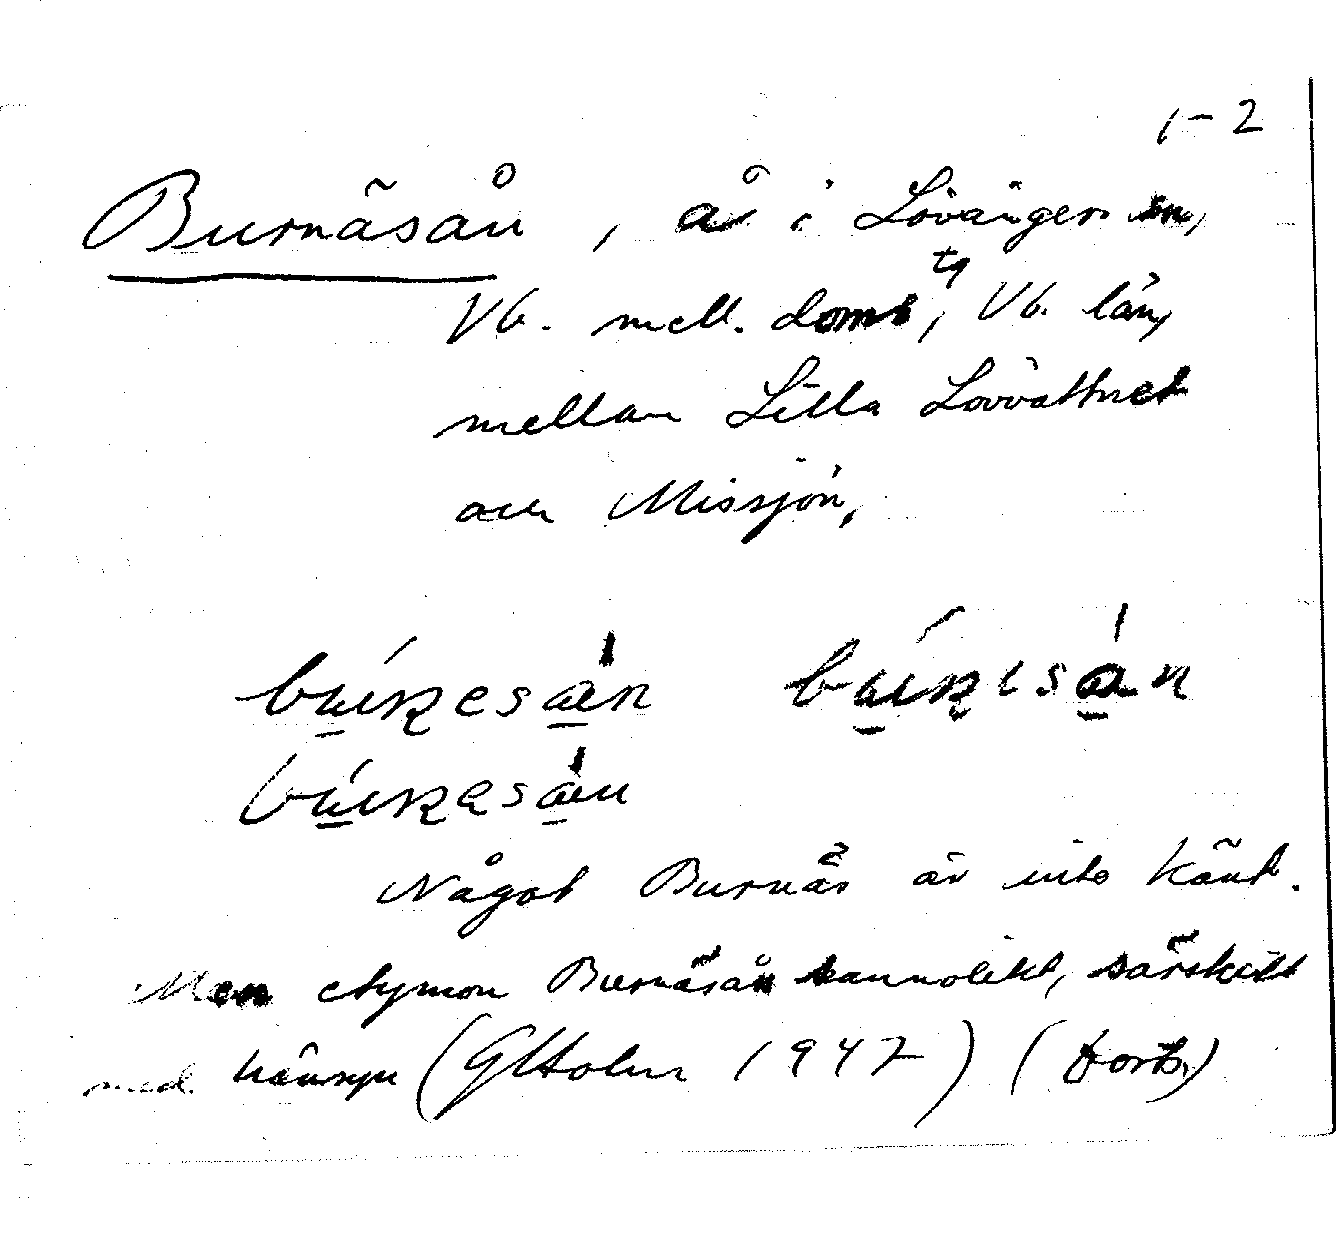 1-2
Burnäsån, å i Lövånger sn,
Vb. mell. doms tg, Vb. län,
mellan Lilla Lövvattnet
och Missjön.
Något Burnäs är inte känt.
Men etymon Burnäsån sannolikt, särskilt
med hänsyn (GHolm 1947) (forts.)